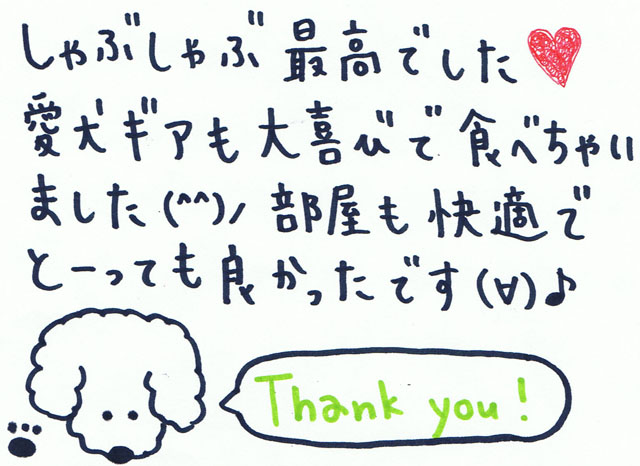 しゃぶしゃぶ 最高でした♥
愛犬ギアも大喜びで食べちゃい
ました(^^)ノ 部屋も快適で
とーっても良かったです(∀)♪
Thank you!